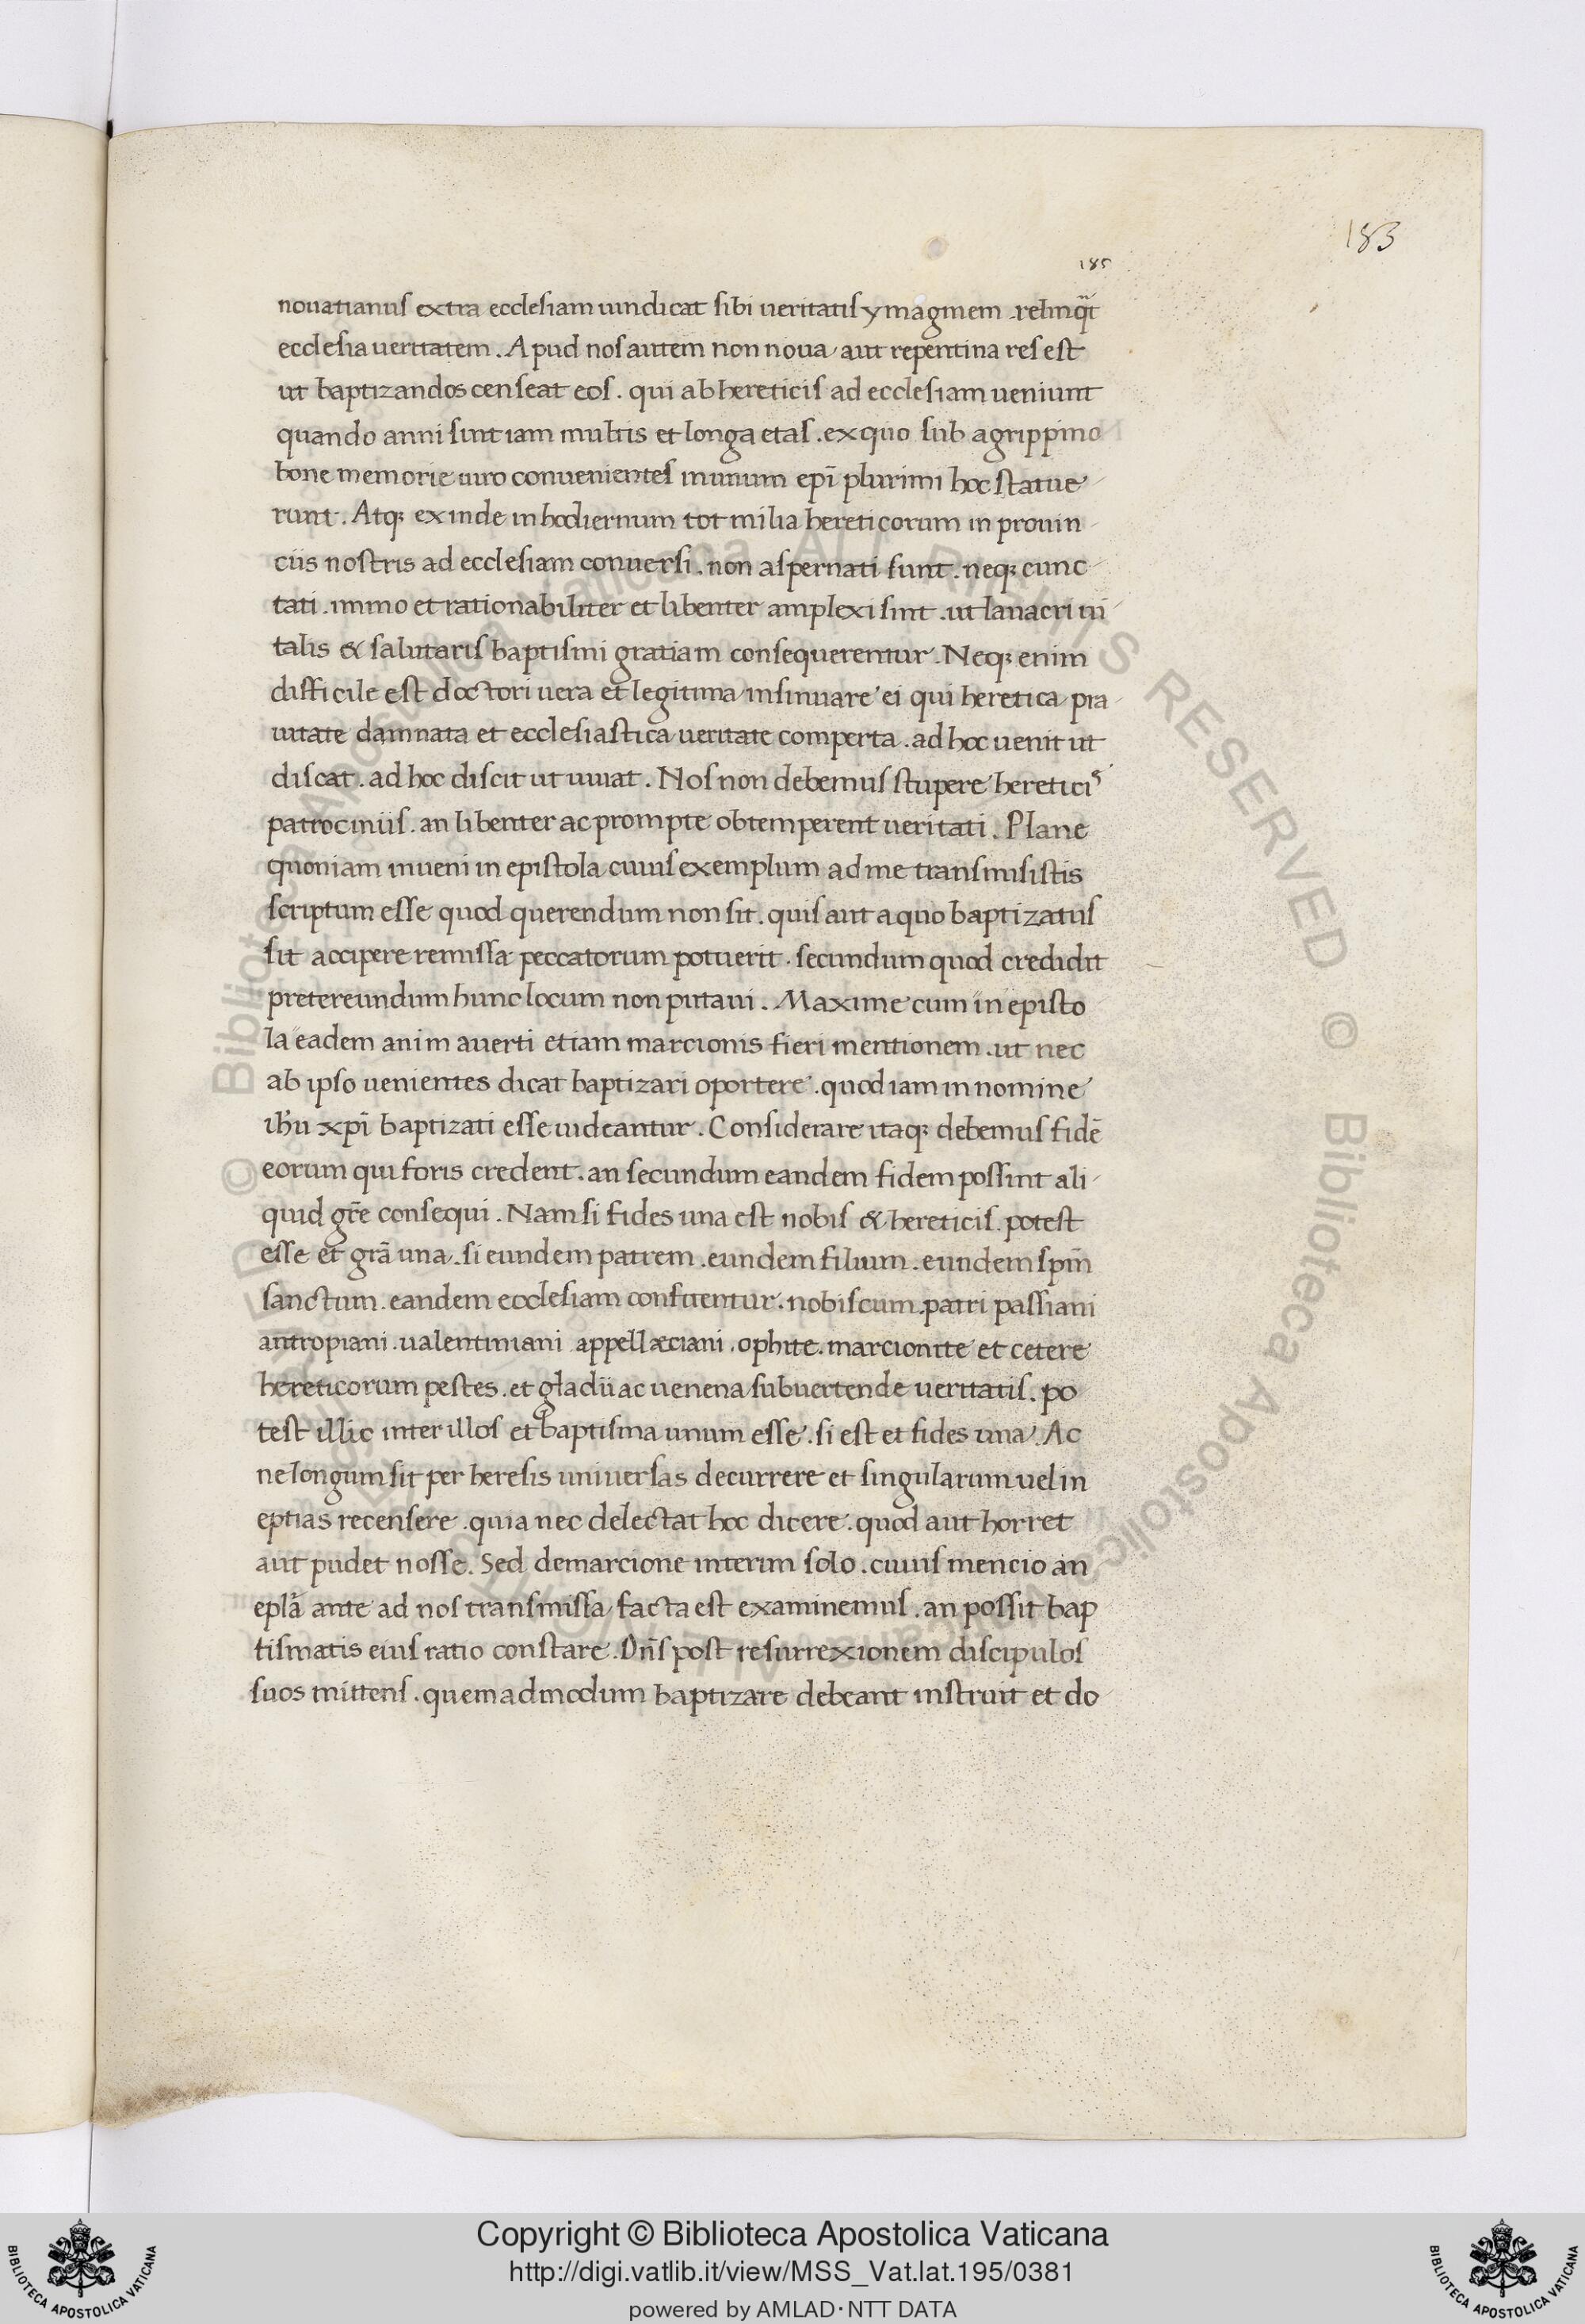 183
185
nouatianus extra ecclesiam uindicat sibi ueritatis ymaginem . relinq̃t
ecclesia ueritatem . Apud nos autem non noua aut repentina res est
ut baptizandos censeat eos . qui ab hereticis ad ecclesiam ueniunt
quando anni sint iam multis et longa etas . ex quo sub agrippino
bone memorie uiro conuenientes inunum epī plurimi hoc statue
runt . Atq; exinde in hodiernum tot milia hereticorum in prouin
ciis nostris ad ecclesiam conuersi . non aspernati sunt . neq; cunc
tati . immo et rationabiliter et libenter amplexi sint . ut lauacri ui
talis & salutaris baptismi gratiam consequerentur . Neq; enim
difficile est doctori uera et legitima insinuare ei qui heretica pra
uitate damnata et ecclesiastica ueritate comperta . ad hoc uenit ut
discat . ad hoc discit ut uiuat . Nos non debemus stupere hereticis
patrociniis . an libenter ac prompte obtemperent ueritati . Plane
quoniam inueni in epistola cuius exemplum ad me transmisistis
scriptum esse quod querendum non sit . quis aut a quo baptizatus
sit accipere remissa peccatorum potuerit . secundum quod credidit
pretereundum hunc locum non putaui . Maxime cum in episto
la eadem anim auerti etiam marcionis fieri mentionem . ut nec
ab ipso uenientes dicat baptizari oportere . quod iam in nomine
ihu xpī baptizati esse uideantur . Considerare itaq; debemus fidē
eorum qui foris credent . an secundum eandem fidem possint ali
quid grē consequi . Nam si fides una est nobis & hereticis . potest
esse et grā una . si eundem patrem . eundem filium . eundem spm̄
sanctum . eandem ecclesiam confitentur . nobiscum . patri passiani
antropiani . ualentiniani appellæciani . ophite . marcionite et cetere
hereticorum pestes . et gladii ac uenena subuertende ueritatis . po
test illic inter illos et baptisma unum esse . si est et fides una . Ac
ne longum sit per heresis uniuersas decurrere et singularum uel in
eptias recensere . quia nec delectat hoc dicere . quod aut horret
aut pudet nosse . Sed demarcione interim solo . cuius mencio an
eplā ante ad nos transmissa facta est examinemus . an possit bap
tismatis eius ratio constare . Dn̄s post resurrexionem discipulos
suos mittens . quemadmodum baptizare debeant instruit et do
© Biblioteca Apostolica Vaticana ALL RIGHTS RESERVED © Biblioteca Apostolica Vaticana ALL RIGHTS RESERVED
Copyright © Biblioteca Apostolica Vaticana
http://digi.vatlib.it/view/MSS_Vat.lat.195/0381
powered by AMLAD·NTT DATA
BIBLIOTECA APOSTOLICA VATICANA
BIBLIOTECA APOSTOLICA VATICANA